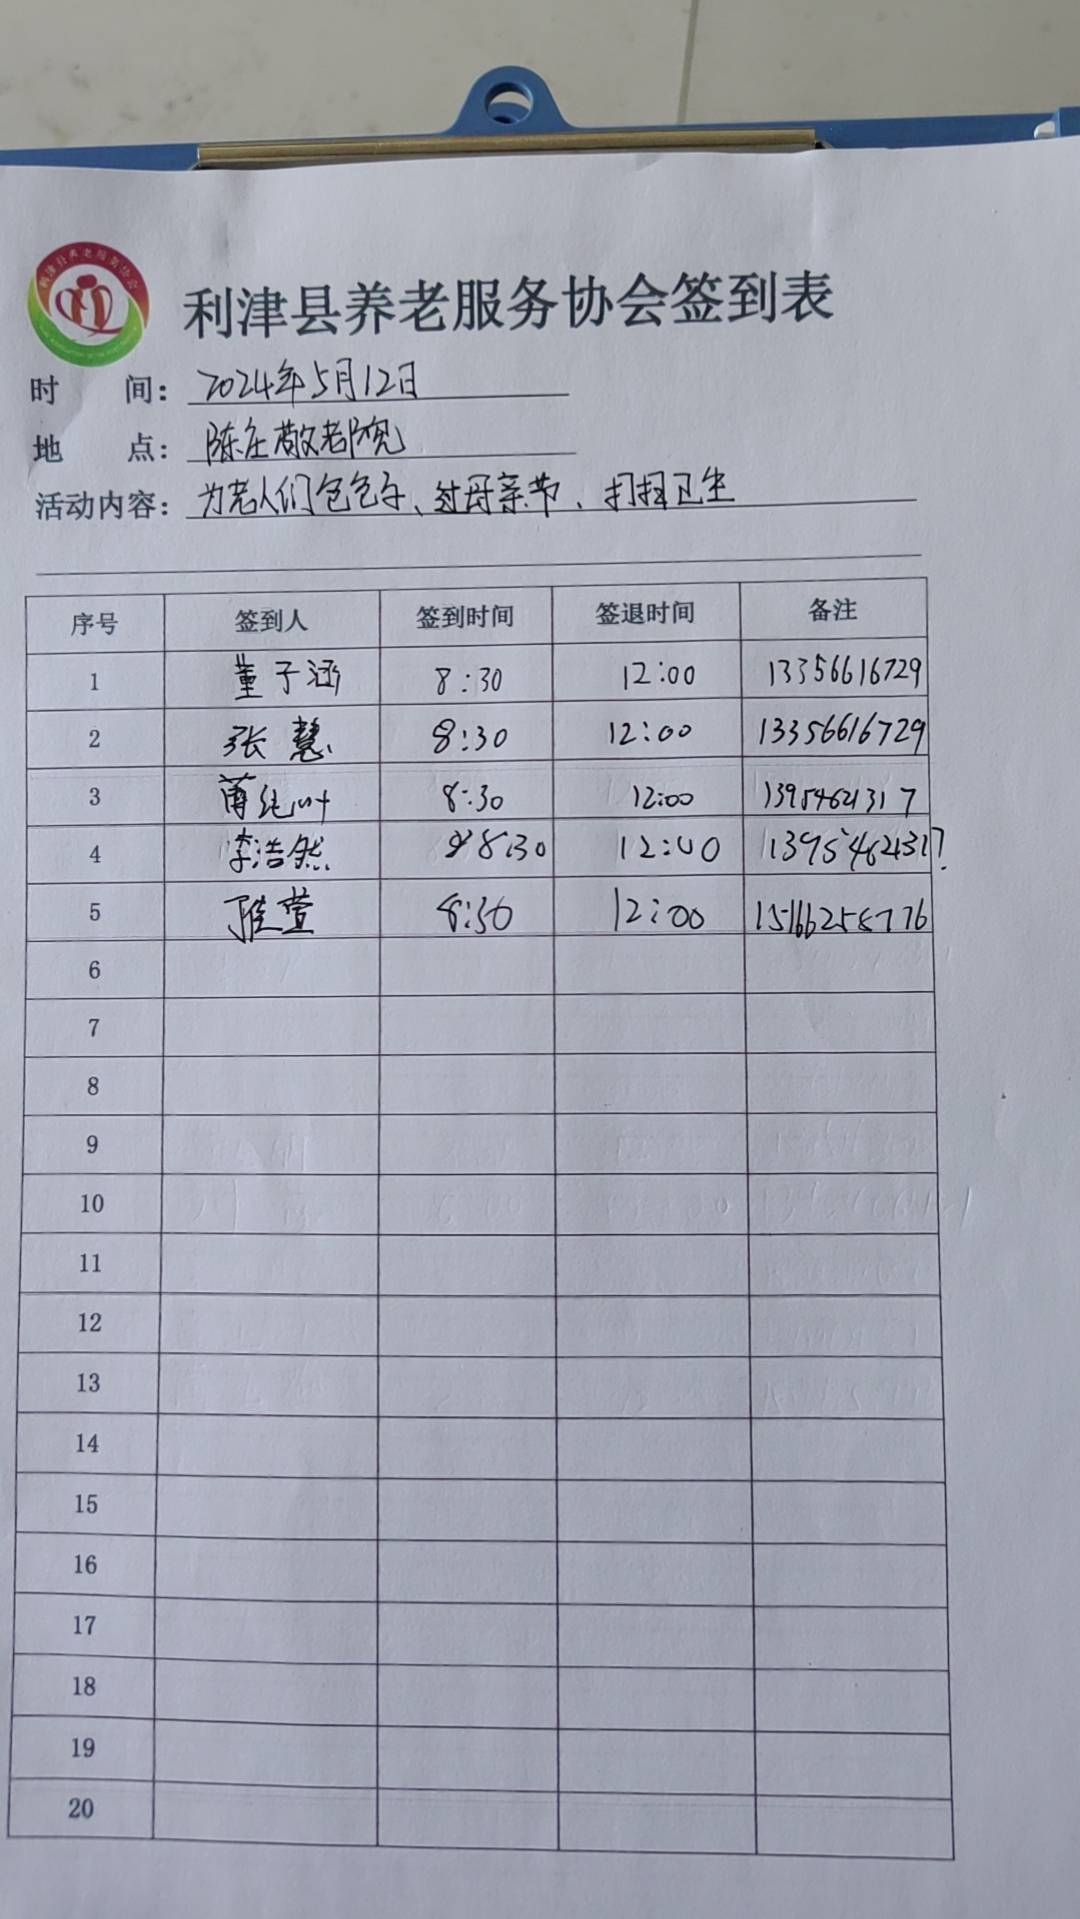 利津县养老服务协会签到表
时 间：2024年5月12日
地 点：陈庄敬老院
活动内容：为老人们包包子、过母亲节、打扫卫生
序号 签到人 签到时间 签退时间 备注
1 董子涵 8:30 12:00 13356616729
2 张慧 8:30 12:00 13356616729
3 8:30 12:00 13954621317
4 李浩然 8:30 12:00 13954621317
5 8:30 12:00
6
7
8
9
10
11
12
13
14
15
16
17
18
19
20